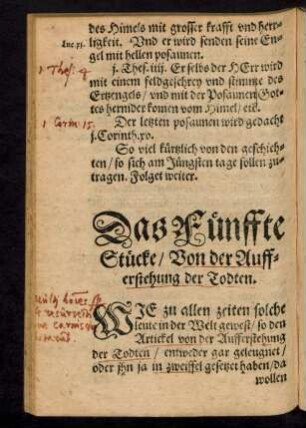 des Himels mit grosser krafft vnd herr-
Luc.xj. ligkeit. Vnd er wird senden seine En-
gel mit hellen posaunen.
1 Thes. 4
j. Thes. iiij. Er selbs der HErr wird
mit einem feldgeschrey vnd stimme des
Ertzengels / vnd mit der Posaunen Got-
tes hernider komen vom Himel / etc.
1 Corin. 15.
Der letzten posaunen wird gedacht
j. Corinth. xv.
So viel kürtzlich von den geschich-
ten / so sich am Jüngsten tage sollen zu-
tragen. Folget weiter.
Das Fünffte
Stücke / Von der Auff-
erstehung der Todten.
WIE zu allen zeiten solche
leute in der Welt gewest / so den
Artickel von der Aufferstehung
der Todten / entweder gar geleugnet /
oder jhn ja in zweiffel gesetzet haben / da
wollen